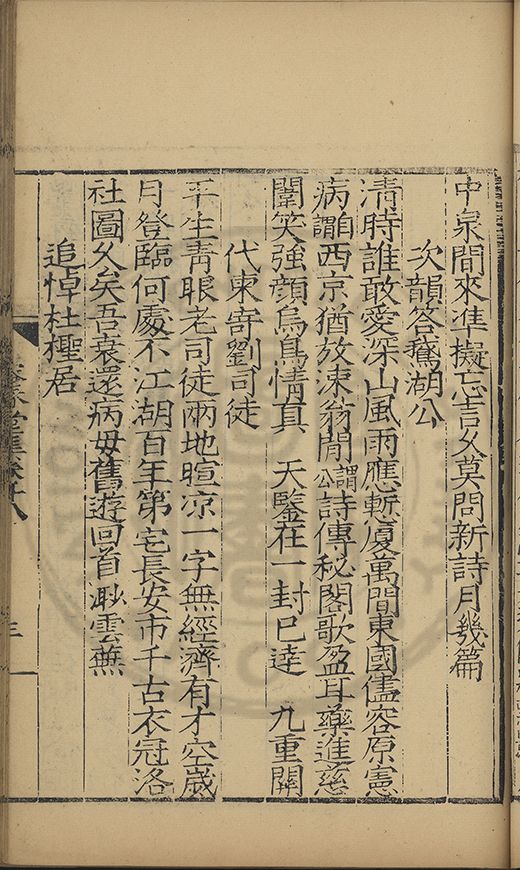 中泉間來準擬忘言久莫問新詩月幾篇
次韻答鵞湖公
清時誰敢愛深山風雨應慙廈萬間東國儘容原憲
病謂西京猶放涑翁閒謂公詩傳秘閣歌盈耳藥進慈
闈笑強顏烏鳥情真 天鑒在一封已達 九重關
代柬寄劉司徒
平生靑眼老司徒兩地暄凉一字無經濟有才空歲
月登臨何處不江湖百年第宅長安市千古衣冠洛
社圖久矣吾衰還病毋舊遊回首渺雲蕪
追悼杜檉居
三